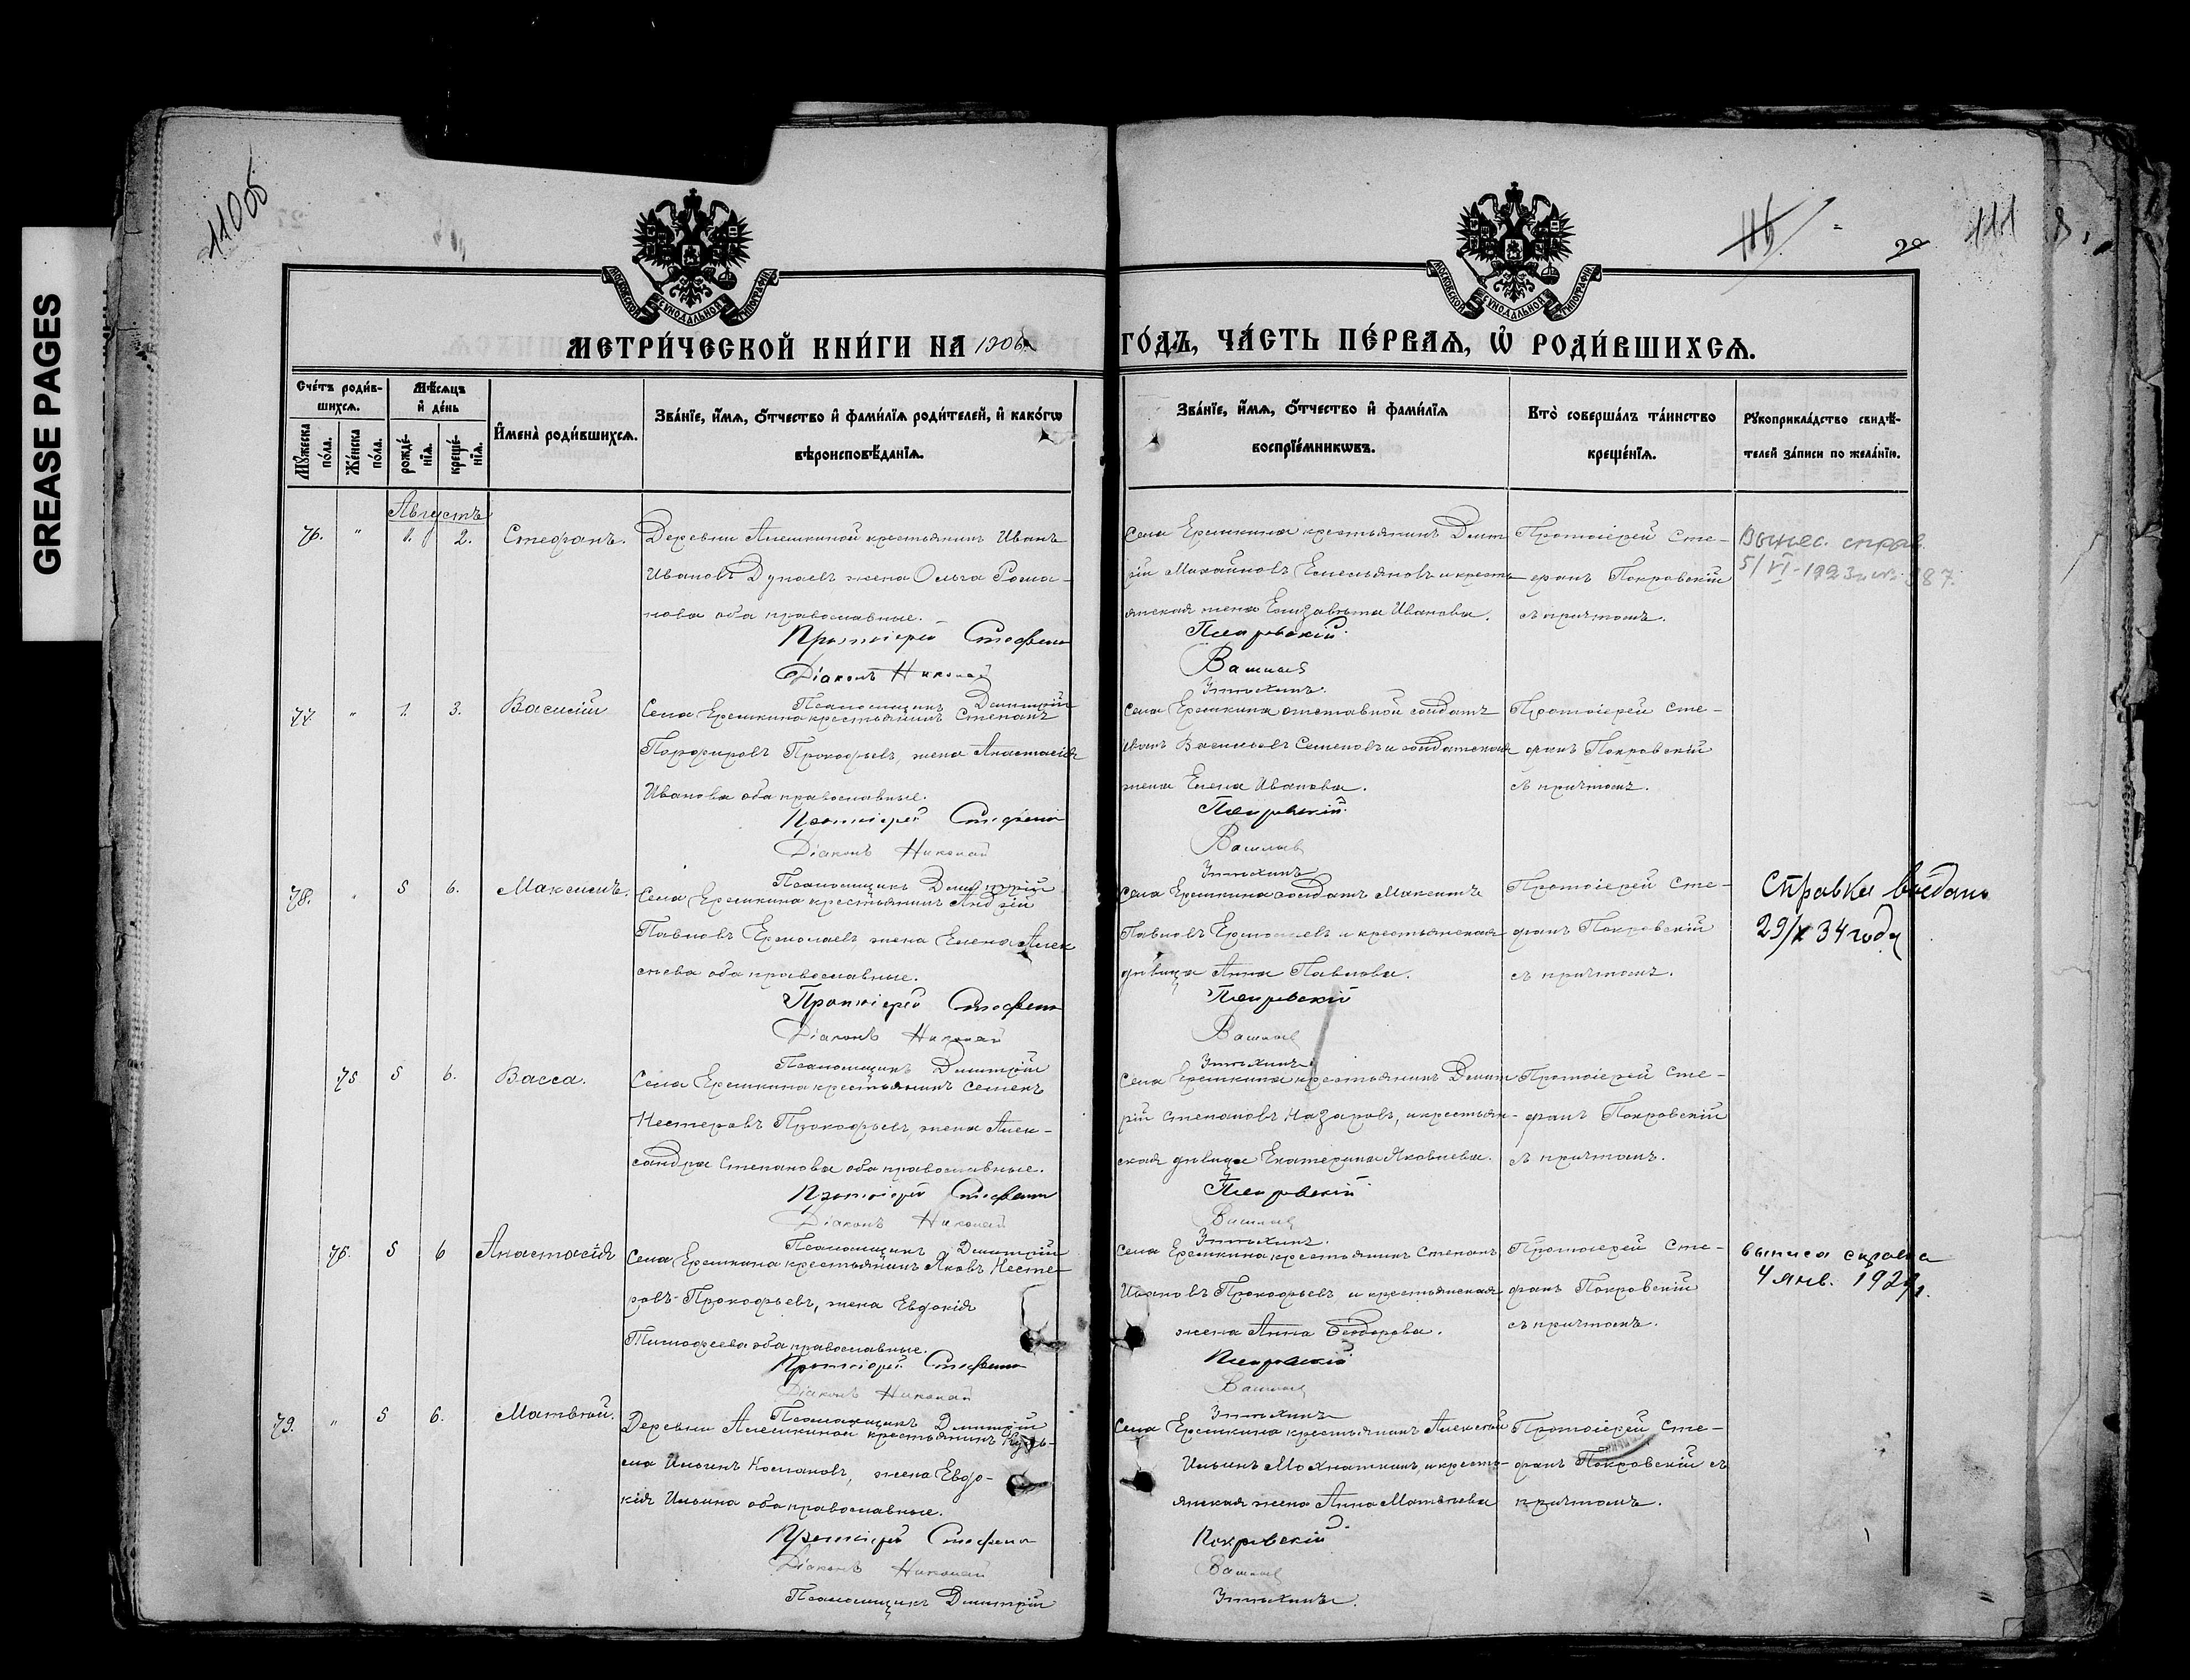 GREASE PAGES
110об
111
МОСКОВСКОЙ СѴНОДАЛЬНОЙ ТИПОГРАФІИ
МОСКОВСКОЙ СѴНОДАЛЬНОЙ ТИПОГРАФІИ
МЕТРИ́ЧЕСКОЙ КНИ́ГИ НА 1906
ГО́ДЪ, ЧА́СТЬ ПЕ́РВАѦ, Ѽ РОДИ́ВШИХСѦ.
Сче́тъ роди́в-
шихсѧ.
Мꙋ́жеска по́ла.
Же́нска по́ла.
Мѣ́сѧцъ
и҆ де́нь
рожде́-
нїѧ.
креще́-
нїѧ.
И҆мена̀ роди́вшихсѧ.
Зва́нїе, и҆́мѧ, ѻ҆́тчество и҆ фами́лїѧ роди́телей, и҆ како́гѡ
вѣроисповѣ́данїѧ.
Зва́нїе, и҆́мѧ, ѻ҆́тчество и҆ фами́лїѧ
воспрїе́мникѡвъ.
Кто̀ соверша́лъ та́инство
креще́нїѧ.
Рꙋкоприкла́дство свидѣ́-
телей за́писи по жела́нїю.
Августъ
76. " 1. 2. Стефанъ.
Деревни Алешкиной крестьянинъ Иванъ
Ивановъ Дунаевъ жена Ольга Рома-
нова оба православные.
Протоіерей Стефанъ
Діаконъ Николай
Псаломщикъ Димитрій
Села Еремкина крестьянинъ Димит
рій Михайловъ Емельяновъ и кресть-
янская жена Елизавета Иванова.
Покровскій
Зотихинъ.
Протоіерей Сте-
фанъ Покровскій
съ причтомъ.
5/VI-1923 г. № 387.
77. " 1. 3. Василій
Села Еремкина крестьянинъ Степанъ
Порфировъ Прокофьевъ, жена Анастасія
Иванова оба православные.
Протоіерей Стефанъ
Діаконъ Николай
Псаломщикъ Димитрій
Села Еремкина отставной солдатъ
Иванъ Васильевъ Семеновъ и солдатская
жена Елена Иванова.
Покровскій
Зотихинъ
Протоіерей Сте-
фанъ Покровскій
съ причтомъ.
78. " 5 6. Максимъ.
Села Еремкина крестьянинъ Андрей
Павловъ Ермолаевъ жена Елена Алек
сѣева оба православные.
Протоіерей Стефанъ
Діаконъ Николай
Псаломщикъ Димитрій
Села Еремкина солдатъ Максимъ
Павловъ Ермолаевъ и крестьянская
дѣвица Анна Павлова.
Покровскій
Зотихинъ
Протоіерей Сте-
фанъ Покровскій
съ причтомъ.
Справка выдана
29/X 34 года
75 5 6. Васса.
Села Еремкина крестьянинъ Семенъ
Нестеровъ Прокофьевъ, жена Алек-
сандра Степанова оба православные.
Протоіерей Стефанъ
Діаконъ Николай
Псаломщикъ Димитрій
Села Еремкина крестьянинъ Димит
рій Степановъ Назаровъ, и крестьян-
ская дѣвица Екатерина Яковлева.
Покровскій
Зотихинъ.
Протоіерей Сте-
фанъ Покровскій
съ причтомъ.
76. 5 6 Анастасія
Села Еремкина крестьянинъ Яковъ Несте-
ровъ Прокофьевъ, жена Евдокія
Тимофеева оба православные.
Протоіерей Стефанъ
Діаконъ Николай
Псаломщикъ Димитрій
Села Еремкина крестьянинъ Степанъ
Ивановъ Прокофьевъ и крестьянская
жена Анна Ѳедорова.
Покровскій
Зотихинъ
Протоіерей Сте-
фанъ Покровскій
съ причтомъ.
4 янв.
79. " 5 6. Матвѣй.
Деревни Алешкиной крестьянинъ Кузь-
ма Ильинъ Колпаковъ, жена Евдо-
кія Ильина оба православные.
Протоіерей Стефанъ
Діаконъ Николай
Псаломщикъ Димитрій
Села Еремкина крестьянинъ Алексѣй
Ильинъ Мохнаткинъ, и кресть-
янская жена Анна Матвѣева
Покровскій
Зотихинъ.
Протоіерей Сте-
фанъ Покровскій съ
причтомъ.